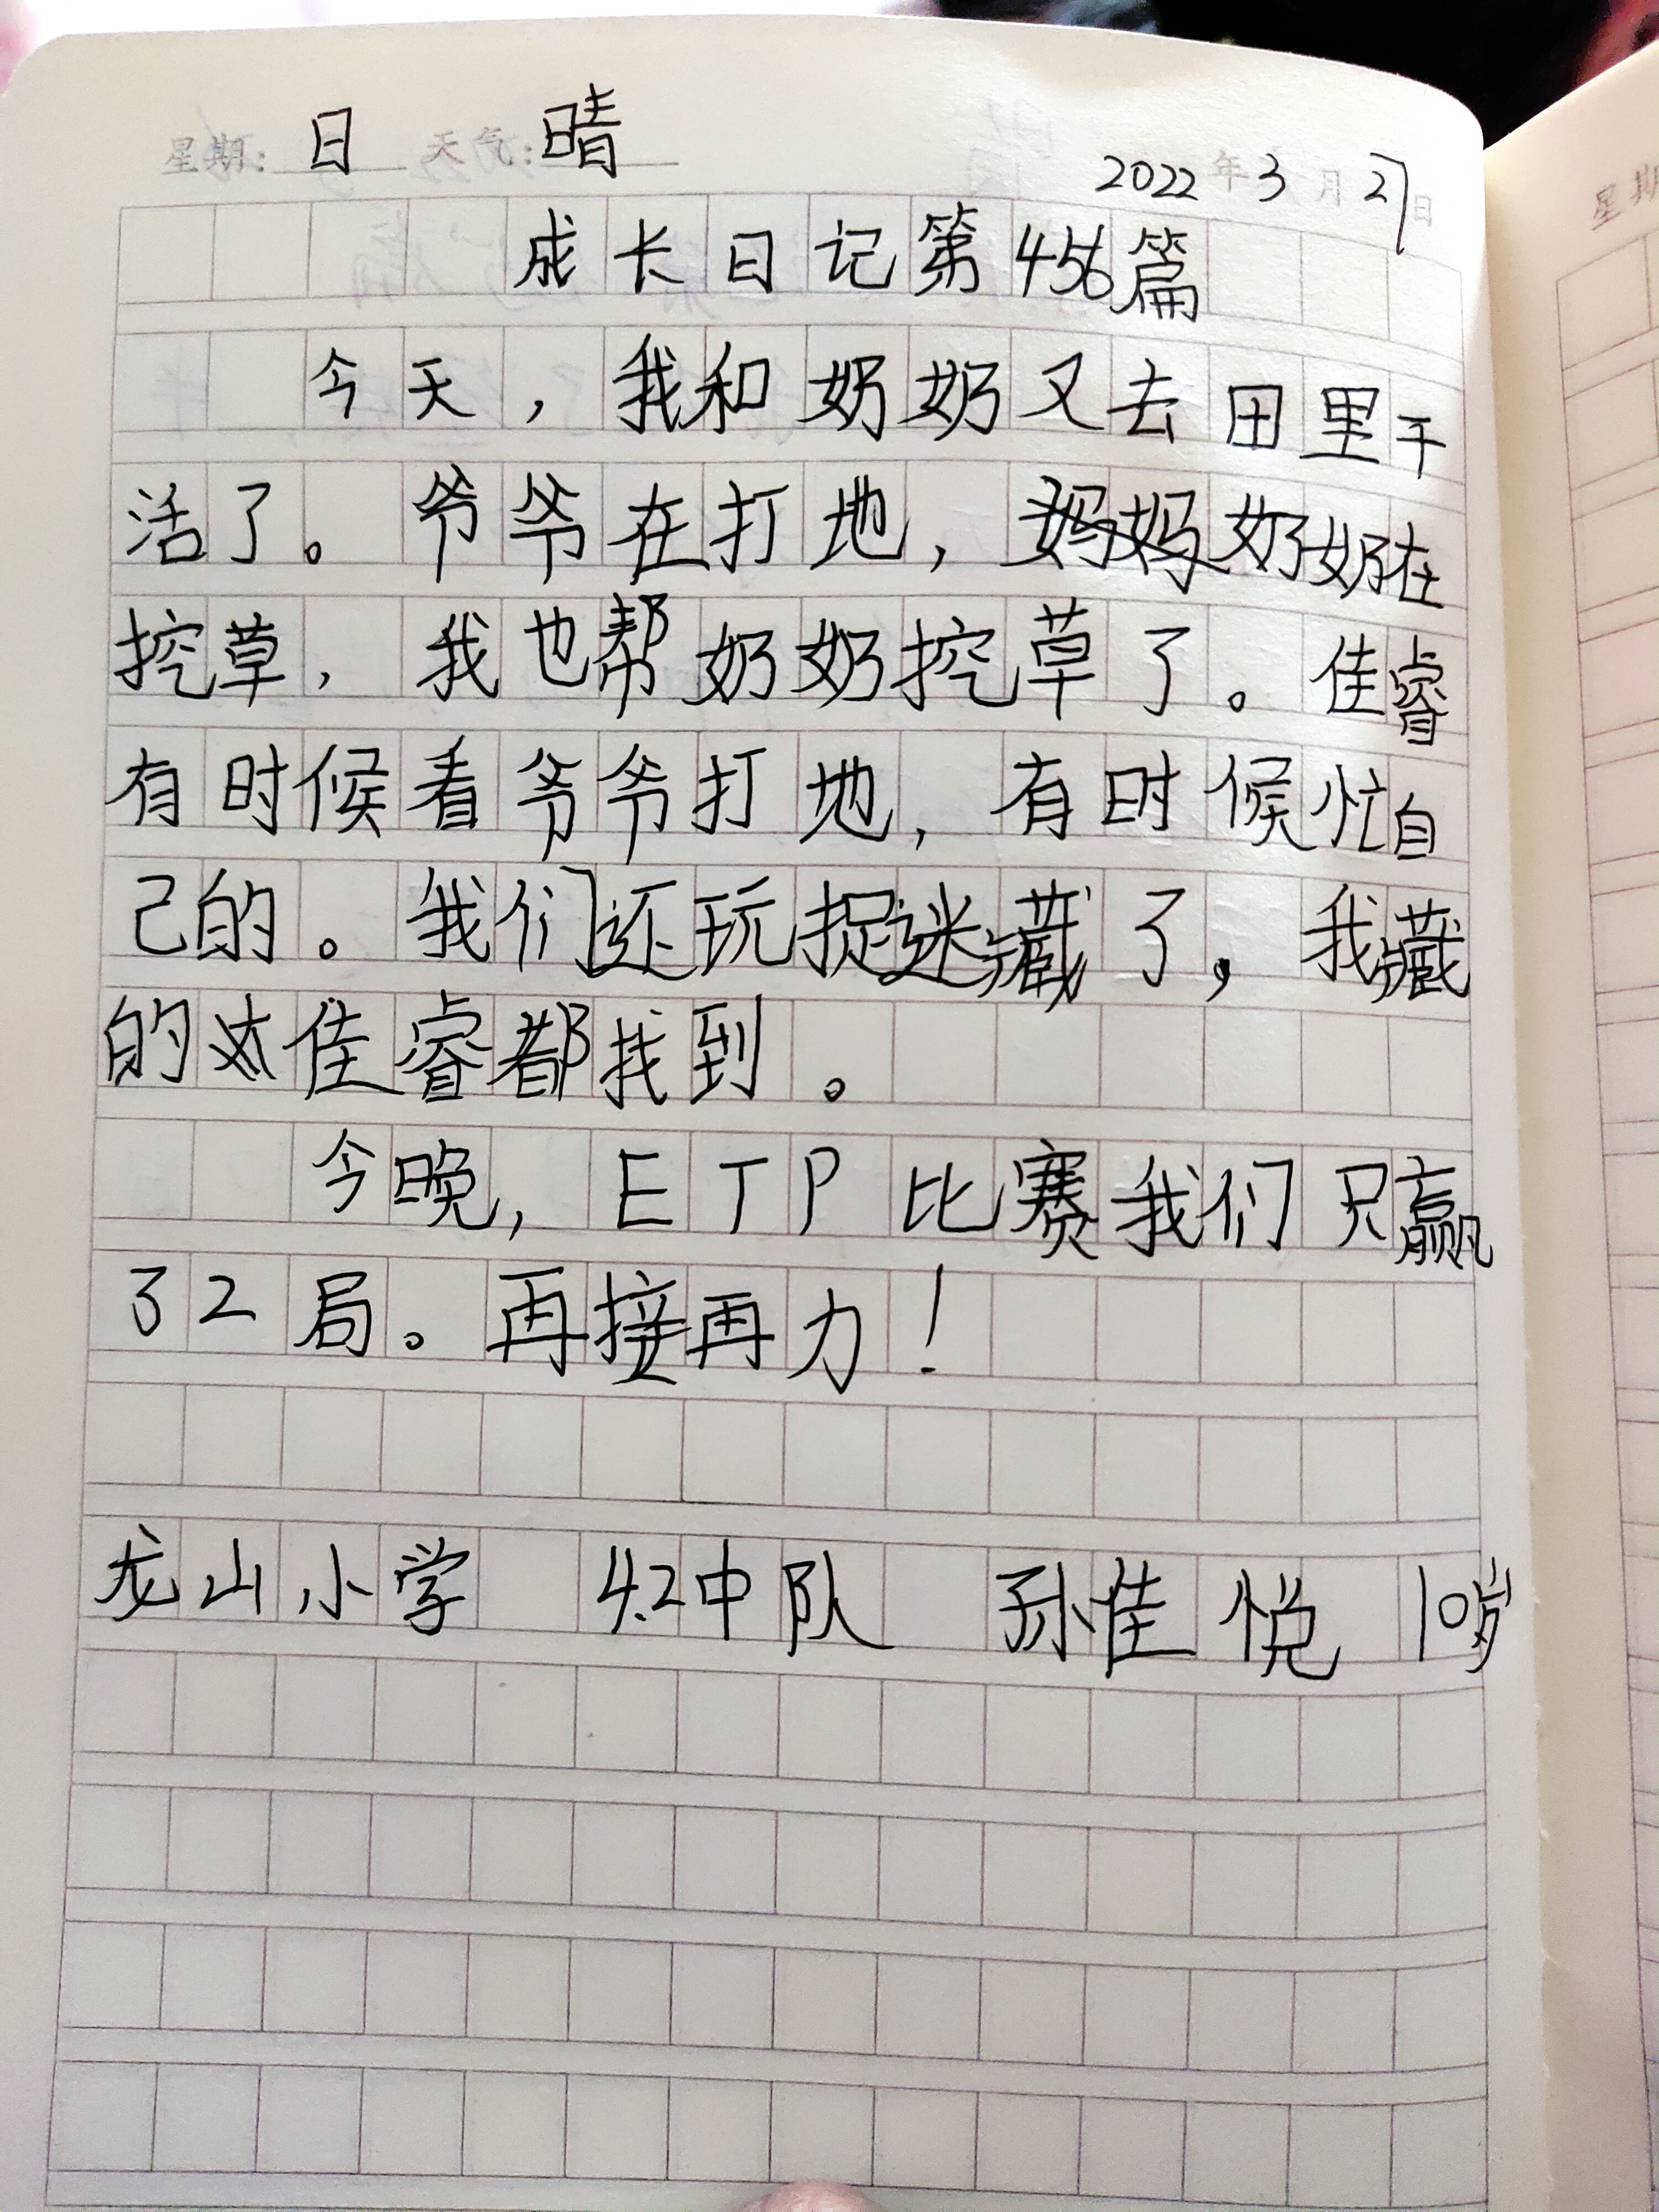 星期：日 天气：晴
2022年3月27日
成长日记第456篇
今天，我和奶奶又去田里干
活了。爷爷在打地，妈妈奶奶在
挖草，我也帮奶奶挖草了。佳睿
有时候看爷爷打地，有时候忙自
己的。我们还玩捉迷藏了，我藏
的佳睿都找到。
今晚，ETP比赛我们只赢
了2局。再接再力！
龙山小学 4.2中队 孙佳悦 10岁
星期